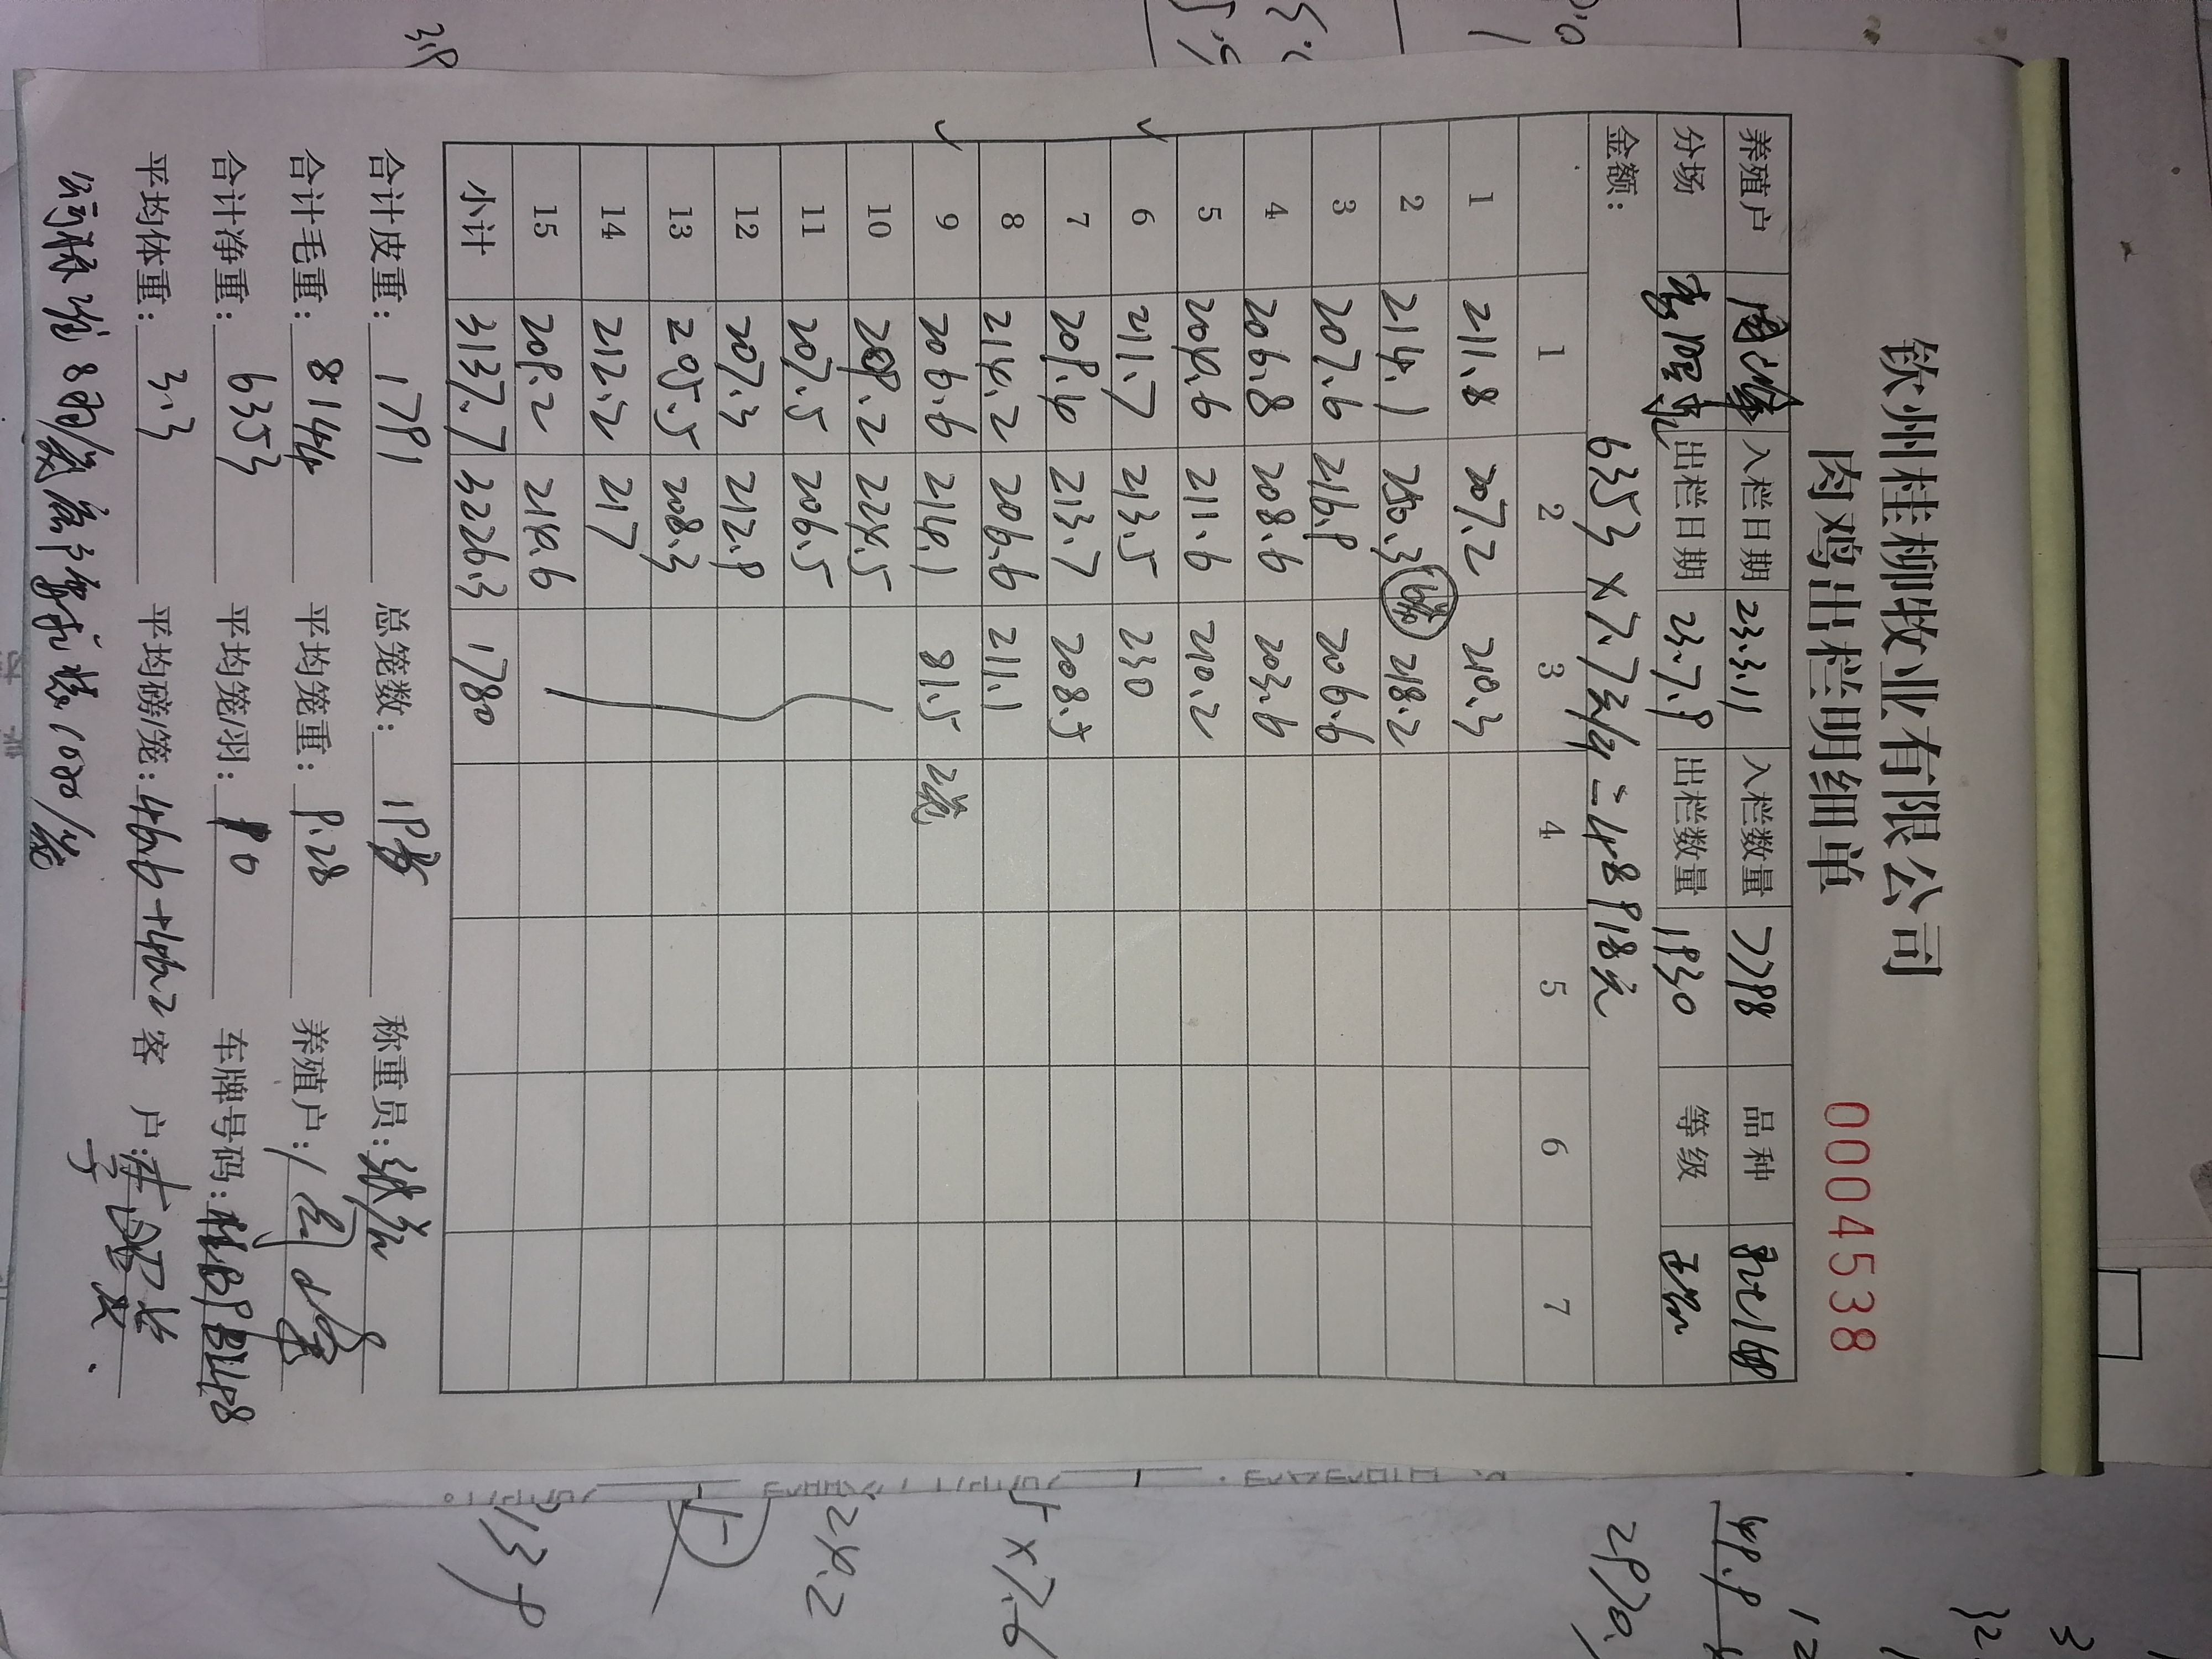 钦州桂柳牧业有限公司
肉鸡出栏明细单
0004538
养殖户 入栏日期 23.3.11 入栏数量 7798 品种
分场 出栏日期 23.7.9 出栏数量 1930 等级
金额： 6353 × 7.7元/斤 = 48918元
1 2 3 4 5 6 7
1 211.8 207.2 210.3
2 214.1 250.3 218.2
3 207.6 216.9 206.6
4 206.8 208.6 203.6
5 204.6 211.6 210.2
6 211.7 213.5 230
7 209.4 213.7 208.5
8 214.2 206.6 211.1
9 206.6 214.1 81.5
10 209.2 224.5
11 207.5 206.5
12 207.3 212.9
13 205.5 208.3
14 212.2 217
15 209.2 214.6
小计 3137.7 3226.3 1780
合计皮重：1791 总笼数： 称重员：
合计毛重：8144 平均笼重：9.28 养殖户：
合计净重：6353 平均笼/羽：10 车牌号码：
平均体重：3.3 平均磅/笼：4b6+4b2 客 户：